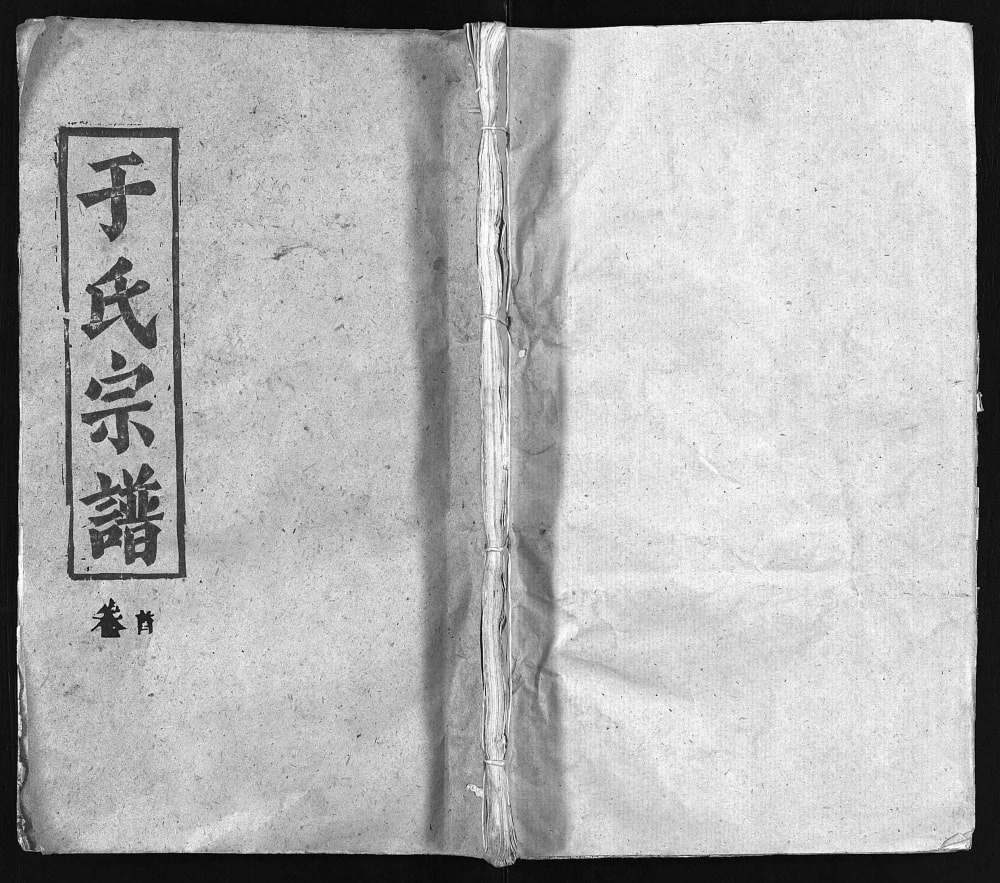 于氏宗譜
卷首